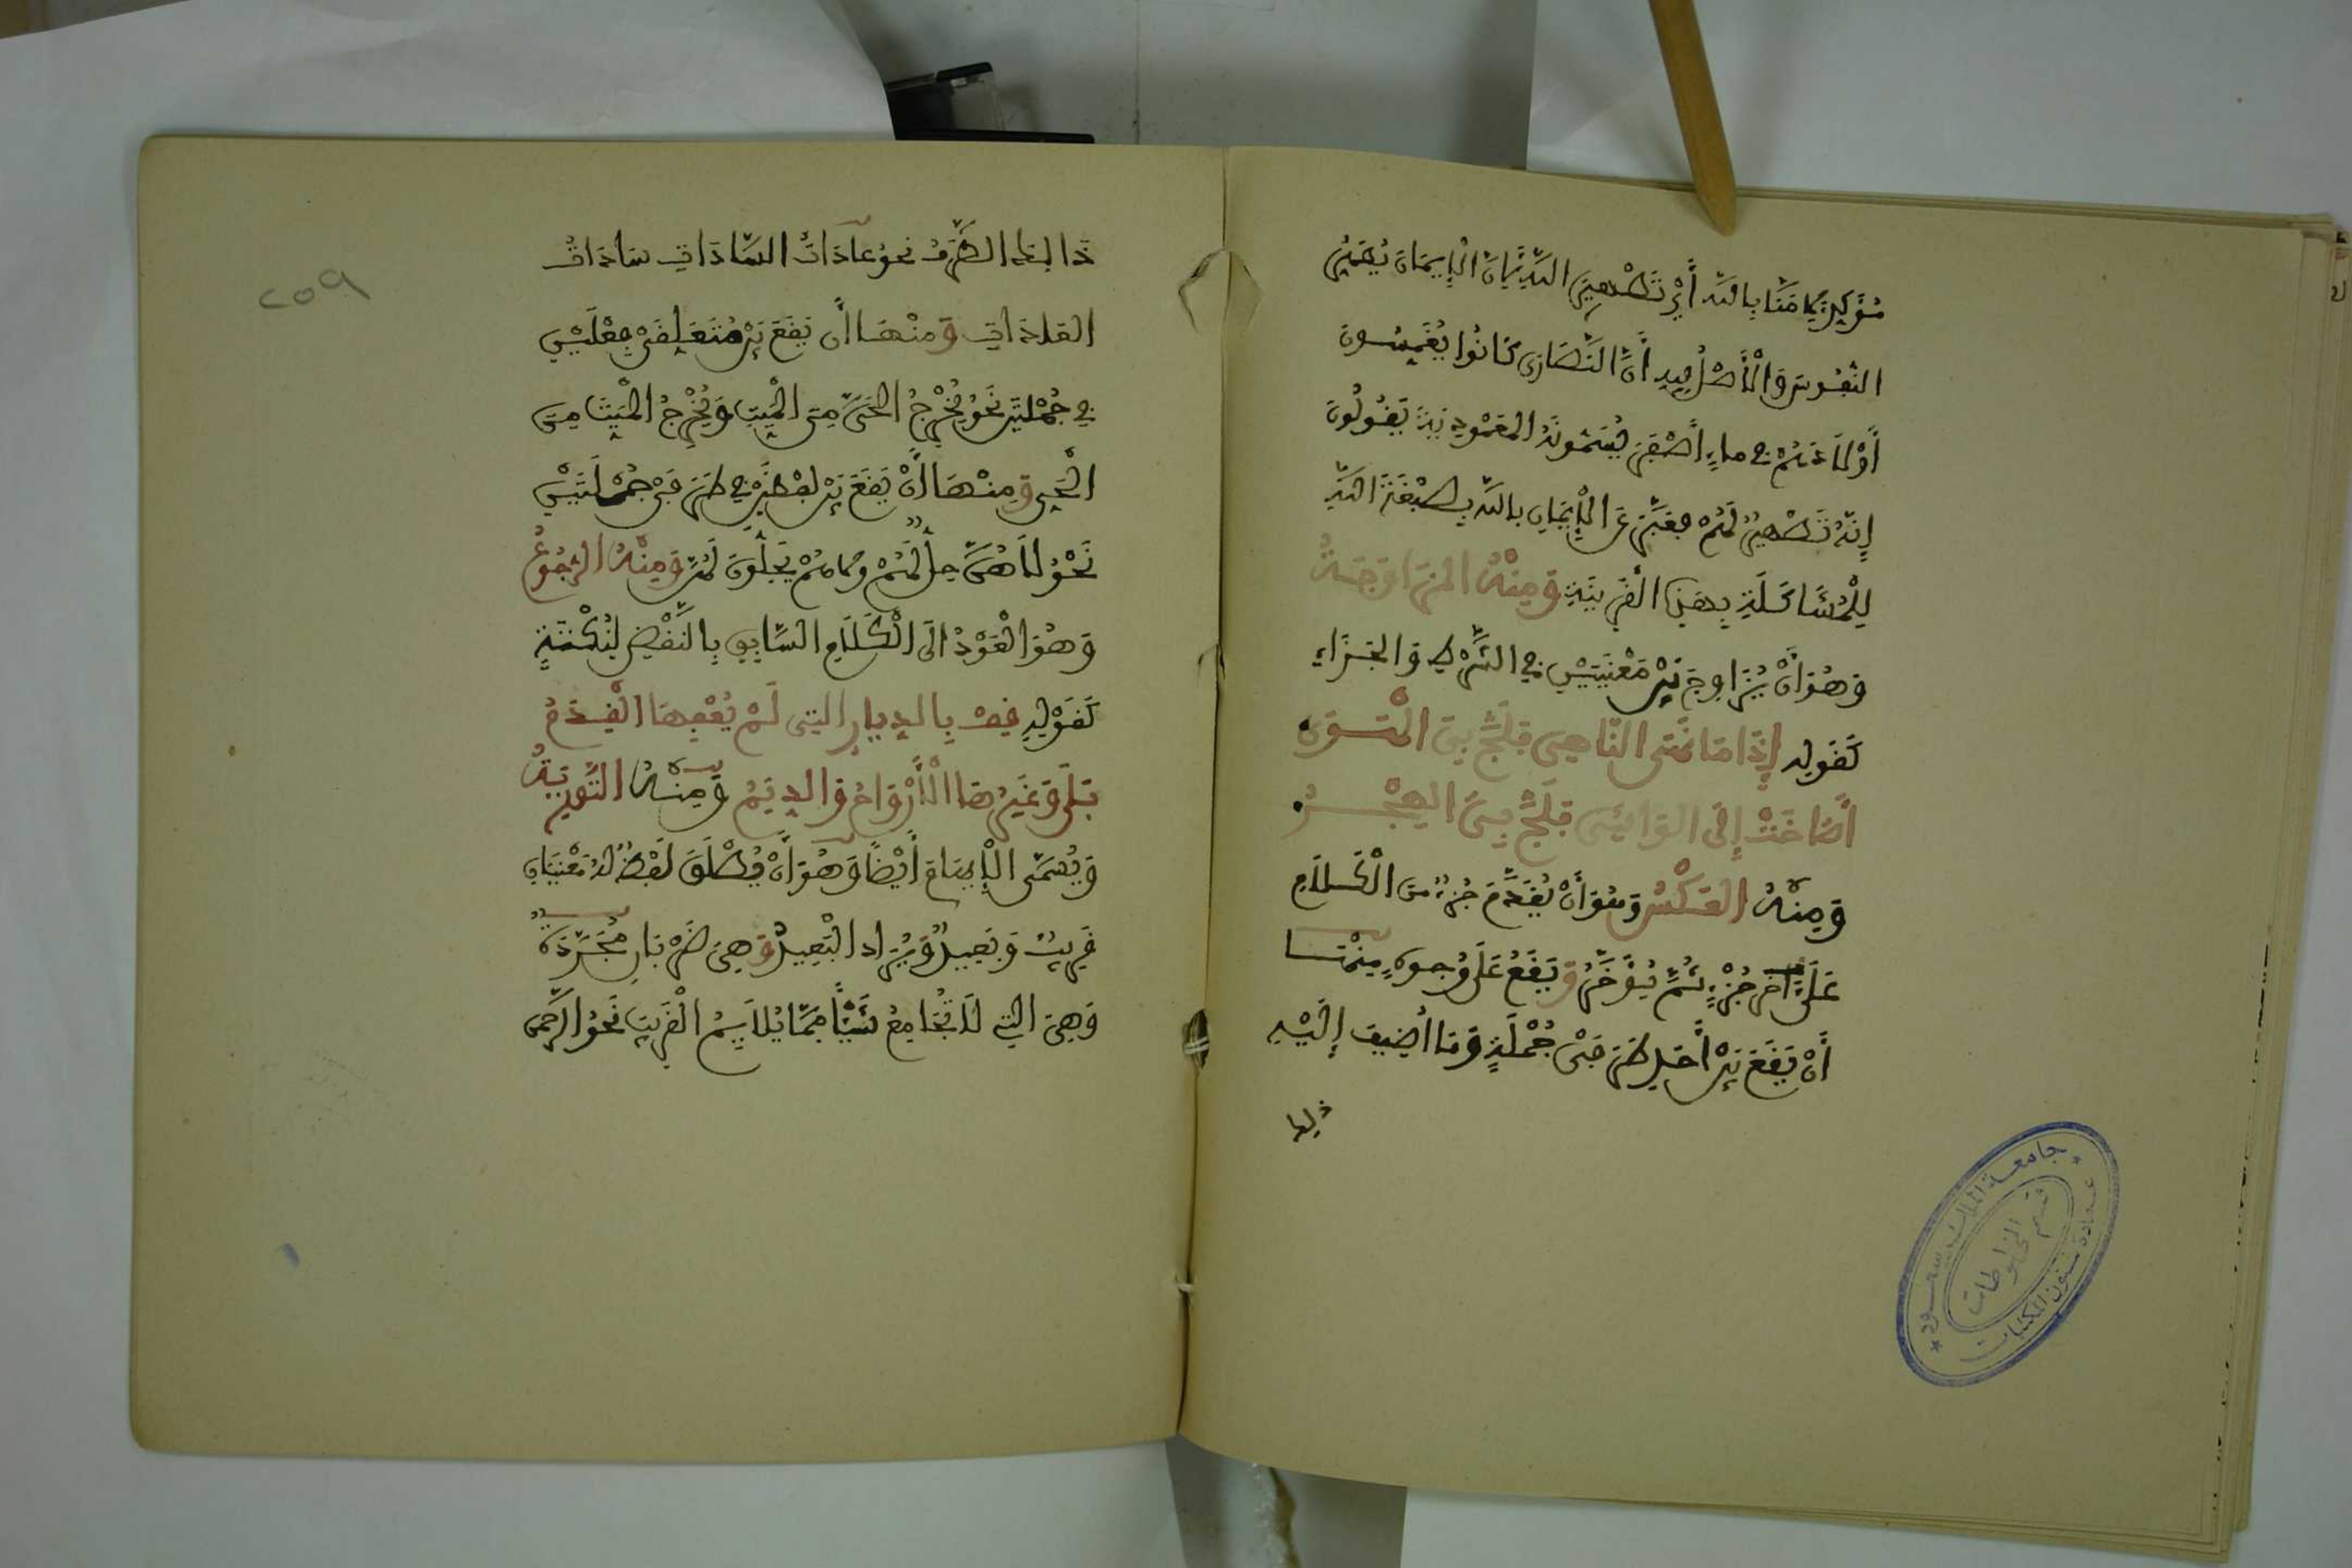 مُؤَكِّدٌ لِآمَنَّا بِاللَّه أَيْ تَطْهِيرَ اللَّهِ لِأَنَّ الْإِيمَانَ يُطَهِّرُ
النُّفُوسَ وَالْأَصْلُ فِيهِ أَنَّ النَّصَارَى كَانُوا يَغْمِسُونَ
أَوْلَادَهُمْ فِي مَاءٍ أَصْفَرَ يُسَمُّونَهُ الْمَعْمُودِيَّةَ يَقُولُونَ
إِنَّهُ تَطْهِيرٌ لَهُمْ فَعَبَّرَ عَنِ الْإِيمَانِ بِاللَّه بِصِبْغَةَ اللَّهِ
لِلْمُشَاكَلَةِ بِهَذِهِ الْقَرِينَةِ وَمِنْهُ الْمُزَاوَجَةُ
وَهُوَ أَنْ يُزَاوِجَ بَيْنَ مَعْنَيَيْنِ فِي الشَّرْطِ وَالْجَزَاءِ
كَقَوْلِهِ إِذَا مَا نَهَى النَّاهِي فَلَجَّ بِيَ الْهَوَى
أَصَاخَتْ إِلَى الْوَاشِي فَلَجَّ بِهَا الْهَجْرُ
وَمِنْهُ الْعَكْسُ وَهُوَ أَنْ يُقَدَّمَ جُزْءٌ مِنَ الْكَلَامِ
عَلَى آخَرَ جُزْءٍ ثُمَّ يُؤَخَّرُ وَيَقَعُ عَلَى وُجُوهٍ مِنْهَا
أَنْ يَقَعَ بَيْنَ أَحَدِ طَرَفَيْ جُمْلَةٍ وَمَا أُضِيفَ إِلَيْهِ
ذَلِكَ
ذَلِكَ الطَّرَفُ نَحْوُ عَادَاتُ السَّادَاتِ سَادَاتُ
الْعَادَاتِ وَمِنْهَا أَنْ يَقَعَ بَيْنَ مُتَعَلِّقَيْ فِعْلَيْنِ
فِي جُمْلَتَيْنِ نَحْوُ يُخْرِجُ الْحَيَّ مِنَ الْمَيِّتِ وَيُخْرِجُ الْمَيِّتَ مِنَ
الْحَيِّ وَمِنْهَا أَنْ يَقَعَ بَيْنَ لَفْظَيْنِ فِي طَرَفَيْ جُمْلَتَيْنِ
نَحْوُ لَا هُنَّ حِلٌّ لَهُمْ وَلَا هُمْ يَحِلُّونَ لَهُنَّ وَمِنْهُ الرُّجُوعُ
وَهُوَ الْعَوْدُ إِلَى الْكَلَامِ السَّابِقِ بِالنَّقْضِ لِنُكْتَةٍ
كَقَوْلِهِ قِفْ بِالدِّيَارِ الَّتِي لَمْ يُعْفِهَا الْقِدَمُ
بَلَى وَغَيَّرَهَا الْأَرْوَاحُ وَالدِّيَمُ وَمِنْهُ التَّوْرِيَةُ
وَيُسَمَّى الْإِيهَامَ أَيْضًا وَهُوَ أَنْ يُطْلَقَ لَفْظٌ لَهُ مَعْنَيَانِ
قَرِيبٌ وَبَعِيدٌ وَيُرَادَ الْبَعِيدُ وَهِيَ ضَرْبَانِ مُجَرَّدَةٌ
وَهِيَ الَّتِي لَا تُجَامِعُ شَيْئًا مِمَّا يُلَائِمُ الْقَرِيبَ نَحْوُ الرَّحْمَن
٢٥٩
جامعة الملك سعود
عمادة شئون المكتبات
قسم المخطوطات